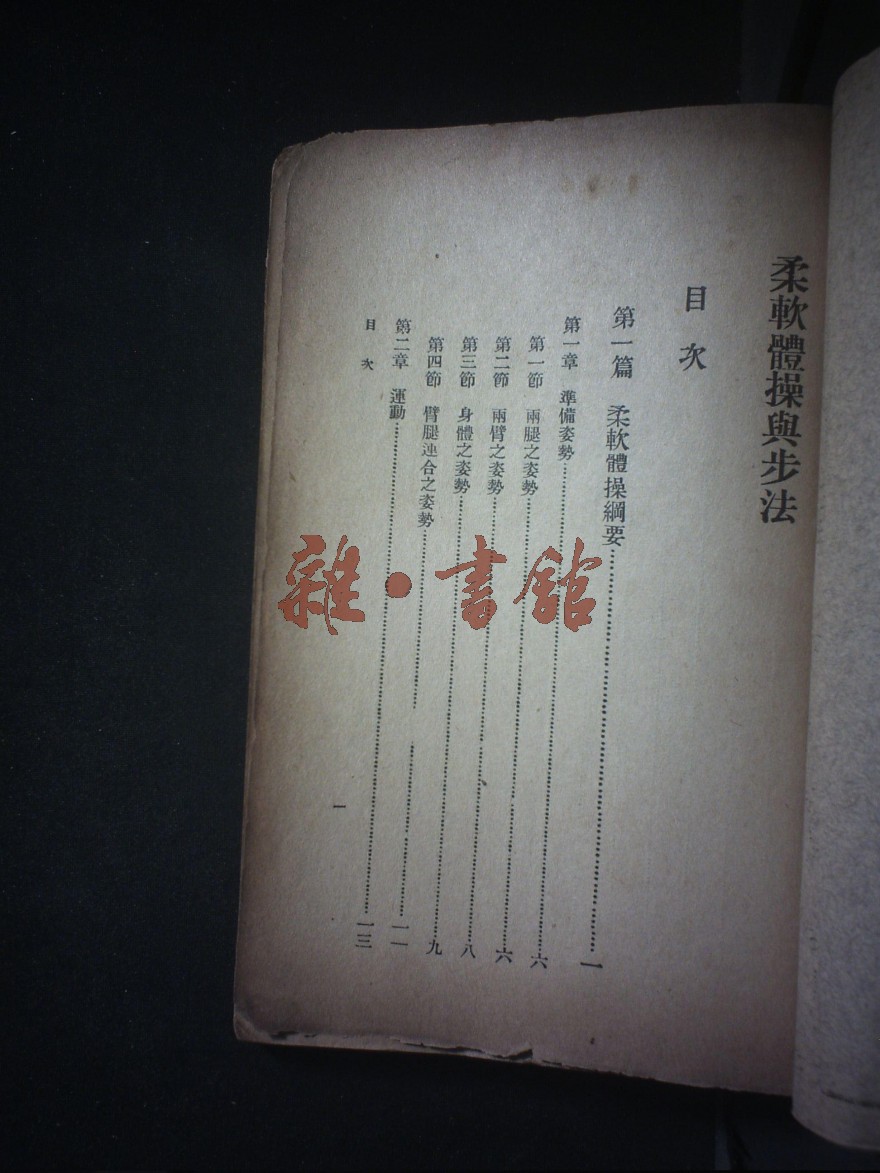 柔軟體操與步法
目次
第一篇 柔軟體操綱要……一
第一章 準備姿勢……六
第一節 兩腿之姿勢……六
第二節 兩臂之姿勢……八
第三節 身體之姿勢……九
第四節 臂腿連合之姿勢……一一
第二章 運動……一三
目次 一
雜·書館